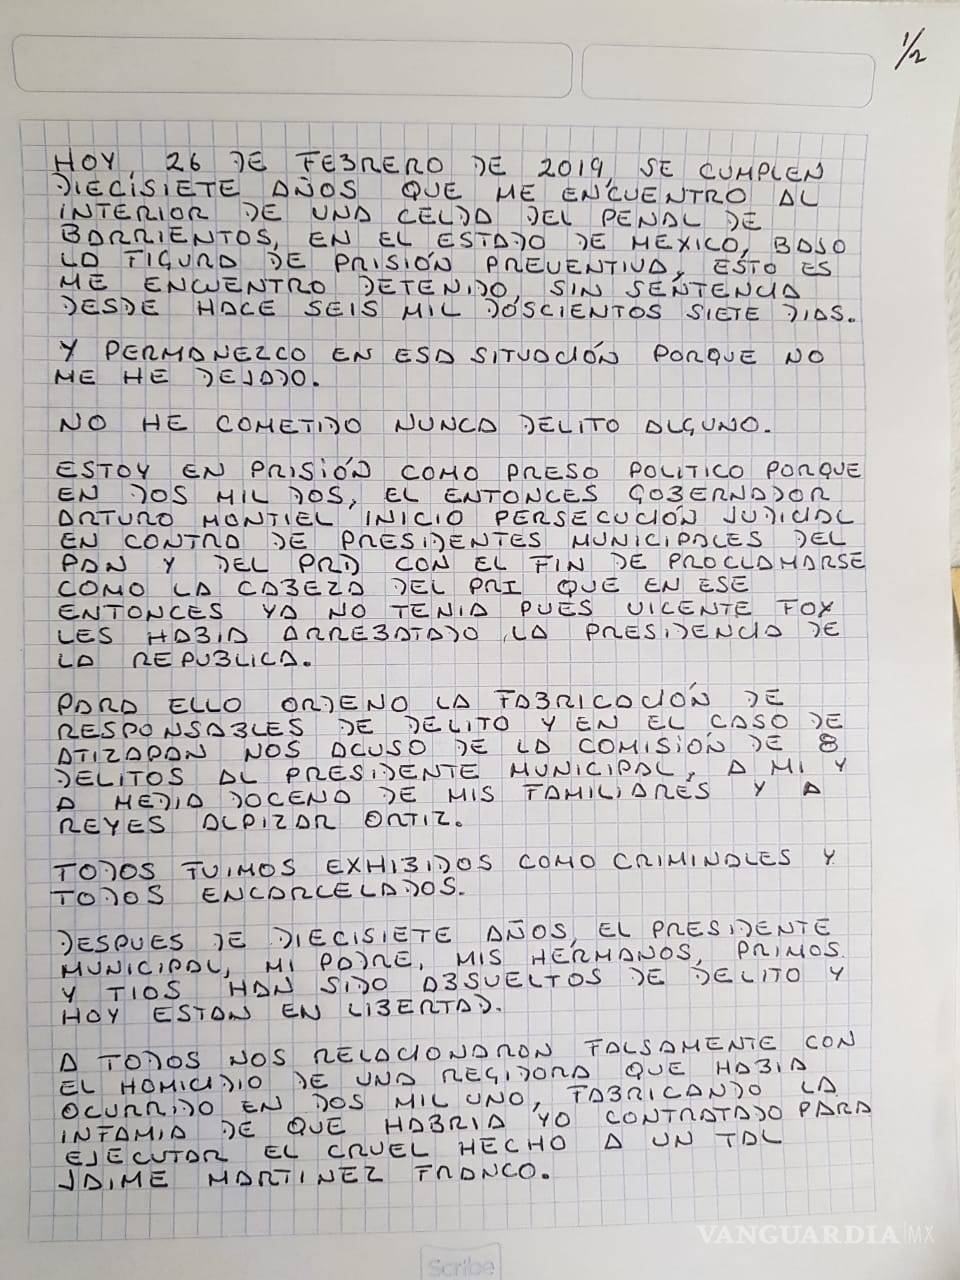 1/2
HOY, 26 DE FEBRERO DE 2019, SE CUMPLEN
DIECISIETE AÑOS QUE ME ENCUENTRO AL
INTERIOR DE UNA CELDA DEL PENAL DE
BARRIENTOS, EN EL ESTADO DE MEXICO, BAJO
LA FIGURA DE PRISIÓN PREVENTIVA, ESTO ES
ME ENCUENTRO DETENIDO, SIN SENTENCIA
DESDE HACE SEIS MIL DOSCIENTOS SIETE DIAS.
Y PERMANEZCO EN ESA SITUACIÓN PORQUE NO
ME HE DEJADO.
NO HE COMETIDO NUNCA DELITO ALGUNO.
ESTOY EN PRISIÓN COMO PRESO POLITICO PORQUE
EN DOS MIL DOS, EL ENTONCES GOBERNADOR
ARTURO MONTIEL INICIO PERSECUCIÓN JUDICIAL
EN CONTRA DE PRESIDENTES MUNICIPALES DEL
PAN Y DEL PRD CON EL FIN DE PROCLAMARSE
COMO LA CABEZA DEL PRI QUE EN ESE
ENTONCES YA NO TENIA PUES VICENTE FOX
LES HABIA ARREBATADO LA PRESIDENCIA DE
LA REPUBLICA.
PARA ELLO ORDENO LA FABRICACIÓN DE
RESPONSABLES DE DELITO Y EN EL CASO DE
ATIZAPAN NOS ACUSO DE LA COMISIÓN DE 8
DELITOS AL PRESIDENTE MUNICIPAL, A MI Y
A MEDIA DOCENA DE MIS FAMILIARES Y A
REYES ALPIZAR ORTIZ.
TODOS FUIMOS EXHIBIDOS COMO CRIMINALES Y
TODOS ENCARCELADOS.
DESPUES DE DIECISIETE AÑOS, EL PRESIDENTE
MUNICIPAL, MI PADRE, MIS HERMANOS, PRIMOS
Y TIOS HAN SIDO ABSUELTOS DE DELITO Y
HOY ESTAN EN LIBERTAD.
A TODOS NOS RELACIONARON FALSAMENTE CON
EL HOMICIDIO DE UNA REGIDORA QUE HABIA
OCURRIDO EN DOS MIL UNO, FABRICANDO LA
INFAMIA DE QUE HABRIA YO CONTRATADO PARA
EJECUTAR EL CRUEL HECHO A UN TAL
JAIME MARTINEZ FRANCO.
VANGUARDIA|MX
Scribe